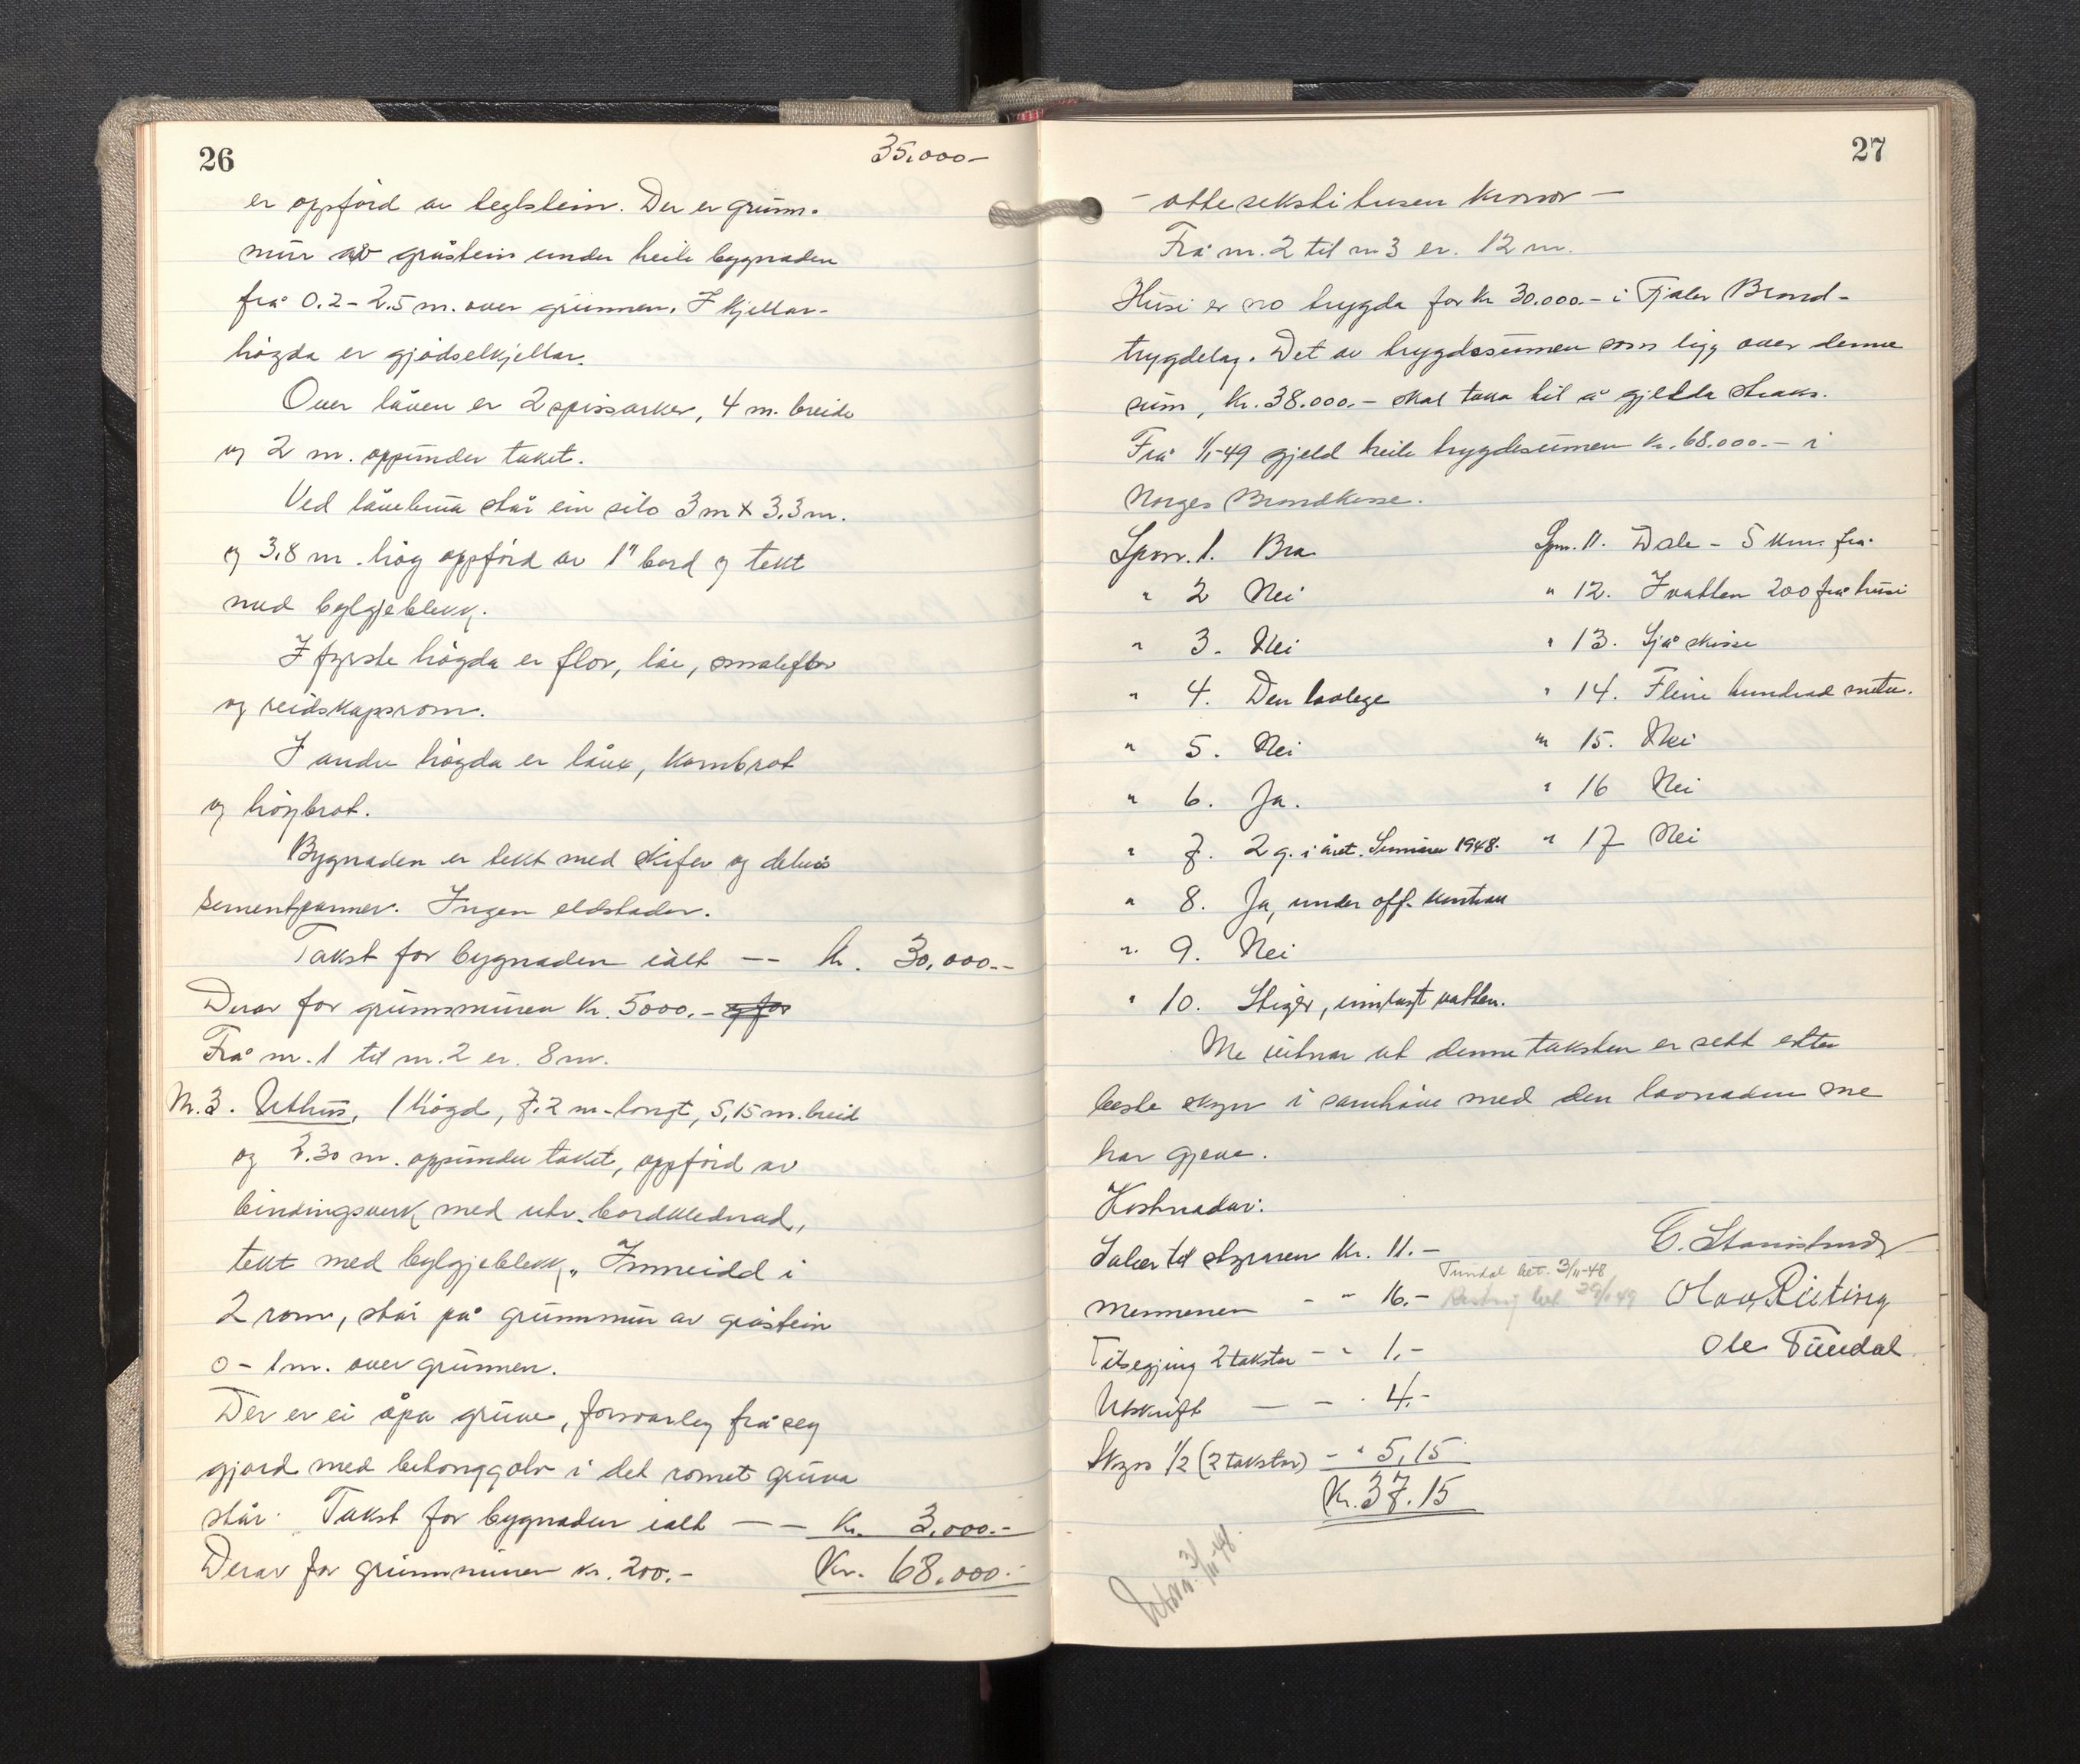 26
35.000-
er oppförd av teglstein. Der er grunn-
mur av gråstein under heile bygnaden
frå 0.2-2.5 m. over grunnen. I kjellar-
högda er gjödselkjellar.
Over låven er 2 spissarker, 4 m. breide
og 2 m. oppunder taket.
Ved låvebrua står ein silo 3 m x 3.3 m.
og 3.8 m. hög oppförd av 1" bord og tekt
med bylgjeblekk.
I fyrste högda er flor, löe, smaleflor
og reidskapsrom.
I andre högda er låve, kornbrot
og höybrot.
Bygnaden er tekt med skifer og delvis
sementpanner. Ingen eldstader.
Takst for bygnaden ialt -- kr. 30.000.--
Derav for grunnmuren kr. 5000.- og for
Frå nr. 1 til nr. 2 er 8 m.
Nr. 3. Uthus, 1 högd, 7.2 m. langt, 5,15 m. breid
og 2.30 m. oppunder taket, oppförd av
bindingsverk med utv. bordklednad,
tekt med bylgjeblekk. Innreidd i
2 rom, står på grunnmur av gråstein
0 - 1 m. over grunnen.
Der er ei åpa gruve, forsvarleg frå seg
gjord med betonggolv i det romet gruva
står. Takst for bygnaden ialt -- Kr. 3.000.-
Derav for grunnmuren kr. 200.- Kr. 68.000.-
27
- åtteseksti tusen kronor -
Frå nr. 2 til nr 3 er. 12 m.
Husi er no trygda for kr 30.000.- i Fjaler Brand-
trygdelag. Det av trygdesumen som ligg over denne
sum, kr. 38.000.- skal taka til å gjelda straks.
Frå 1/1-49 gjeld heile trygdesumen kr. 68.000.- i
Norges Brandkasse.
Spm. 1. Bra Spm. 11. Dale - 5 km. frå
" 2 Nei " 12. I vatten 200 frå husi
" 3. Nei " 13. Sjå skisse
" 4. Den lovlege " 14. Fleire hundrad meter.
" 5. Nei " 15. Nei
" 6. Ja. " 16 Nei
" 7. 2 g. i året. Sumaren 1948. " 17 Nei
" 8. Ja, under off. kontroll
" 9. Nei
" 10. Stiger, innlagt vatten.
Me vitnar at denne taksten er sett etter
beste skyn i samhöve med den lovnaden me
har gjeve.
Kostnadar:
Salær til styraren kr. 11.- C. Stavislund
Tundal bet. 3/11-48
Mennenen - " 16.- Olav Rieting
Tilsegjing 2 takster - " 1.- Ole Tundal
Utskrift - - " 4.-
Skyss 1/2 (2 takster) - " 5,15
Kr. 37.15
3/11-48.